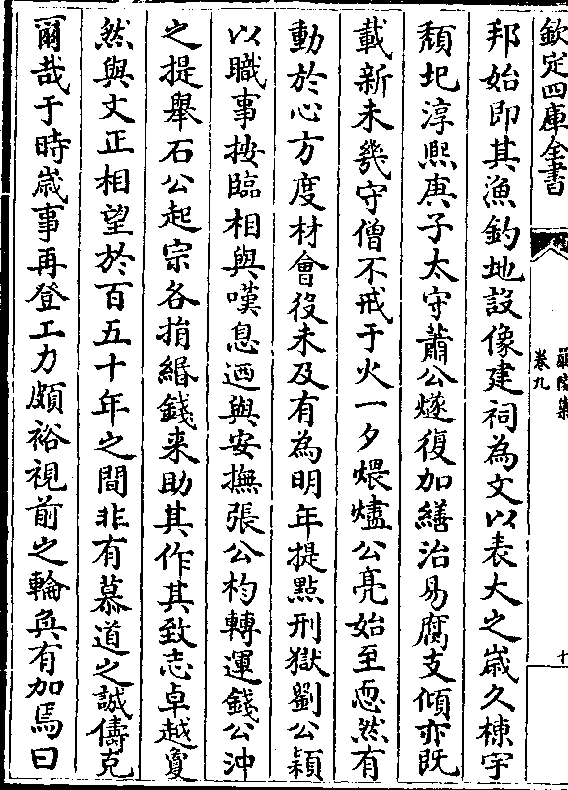 欽定四庫全書
嚴陵集
卷九
十
邦始即其漁釣地設像建祠為文以表大之嵗久棟宇
頽圯淳熙庚子太守蕭公燧復加繕治易腐支傾亦既
載新未幾守僧不戒于火一夕煨燼公亮始至惄然有
動於心方度材會役未及有為明年提㸃刑獄劉公頴
以職事按臨相與嘆息廼與安撫張公杓轉運錢公沖
之提舉石公起宗各捐緡錢来助其作其致志卓越敻
然與文正相望於百五十年之間非有慕道之誠儔克
爾哉于時嵗事再登工力頗裕視前之輪奐有加焉曰